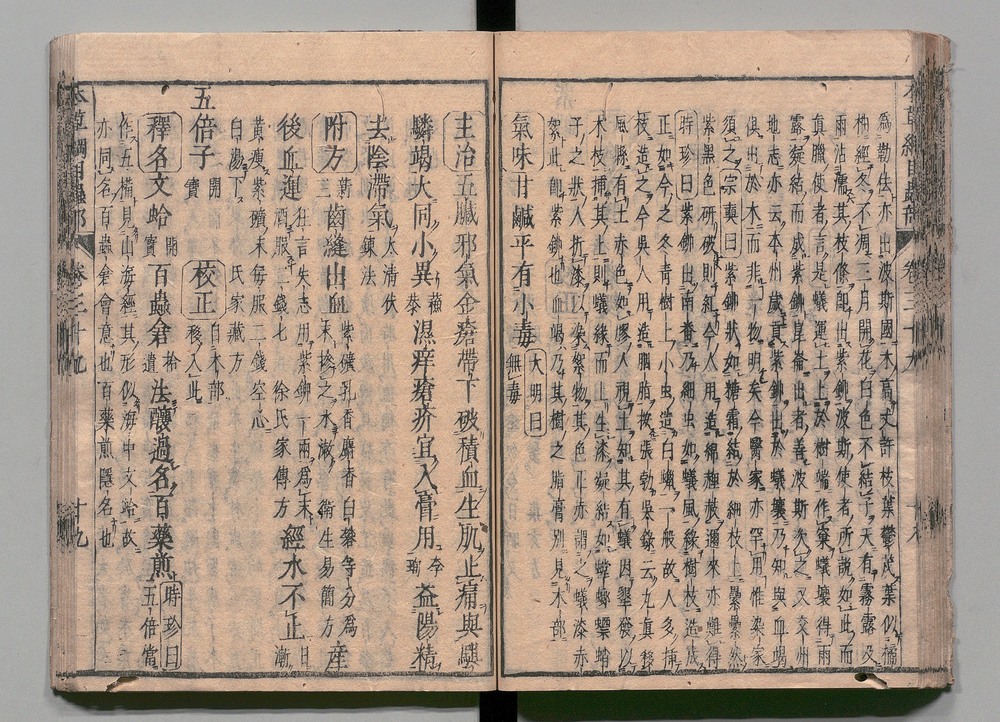 為勒佉亦出波斯國木高丈許枝葉鬱茂葉似橘
柚經冬不凋三月開花白色不結子天有霧露及
雨沾濡其枝條即出紫鉚波斯使者所說如此而
真臘使者言是蟻運土上於樹端作窠蟻壤得雨
露凝結而成紫鉚崑崙出者善波斯次之又交州
地志亦云本州歲貢紫鉚出於蟻壤乃知與血竭
俱出於木而非一物明矣今醫家亦罕用惟染家
須之宗奭曰紫鉚狀如糖霜結於細枝上纍纍然
紫黑色研破則紅今人用造綿䋈脂邇來亦難得
時珍曰紫鉚出南番乃細虫如蟻虱緣樹枝造成
正如今之冬青樹上小虫造白蠟一般故人多插
枝造之今吳人用造胭脂按張勃吳錄云九真移
風縣有土赤色如膠人視土知其有蟻因墾發以
木枝插其上則蟻緣而上生漆凝結如螳螂螵蛸
子之狀人折漆以染絮物其色正赤謂之蟻漆赤
絮此即紫鉚也血竭乃其樹之脂膏別見木部
氣味甘鹹平有小毒大明曰無毒
主治五臟邪氣金瘡帶下破積血生肌止痛與騏
驎竭大同小異蘇恭濕痒瘡疥宜入膏用李珣益陽精
去陰滯氣太清伏鍊法
附方新三齒縫出血紫礦乳香麝香白礬等分為末摻之水漱衛生易簡方產
後血運狂言失志用紫鉚一兩為末酒服二錢七徐氏家傳方經水不止日漸
黃瘦紫礦末每服二錢空心白湯下氏家藏方
五倍子開寶校正自木部移入此
釋名文蛤開寶百蟲倉拾遺法釀過名百藥煎時珍曰五倍當
作五𣗲見山海經其形似海中文蛤故
亦同名百蟲倉會意也百藥煎隱名也
本草綱目蟲部 卷三十九 十八
本草綱目蟲部 卷三十九 十九